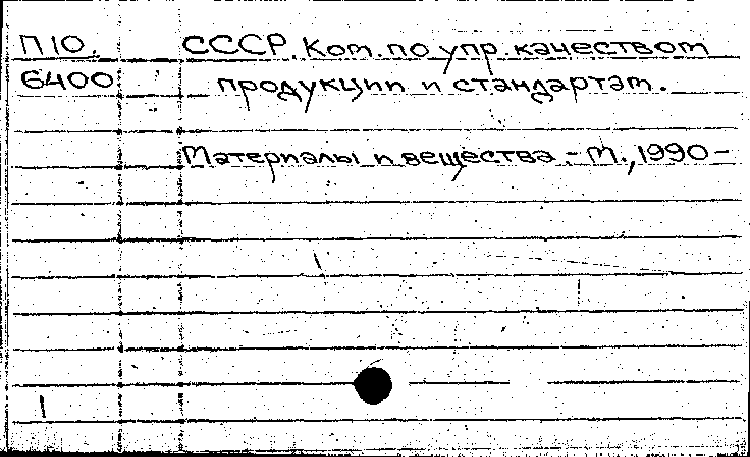 П10. СССР. Ком. по упр. качеством
6400 продукции и стандартам.
Материалы и вещества. – М., 1990 –